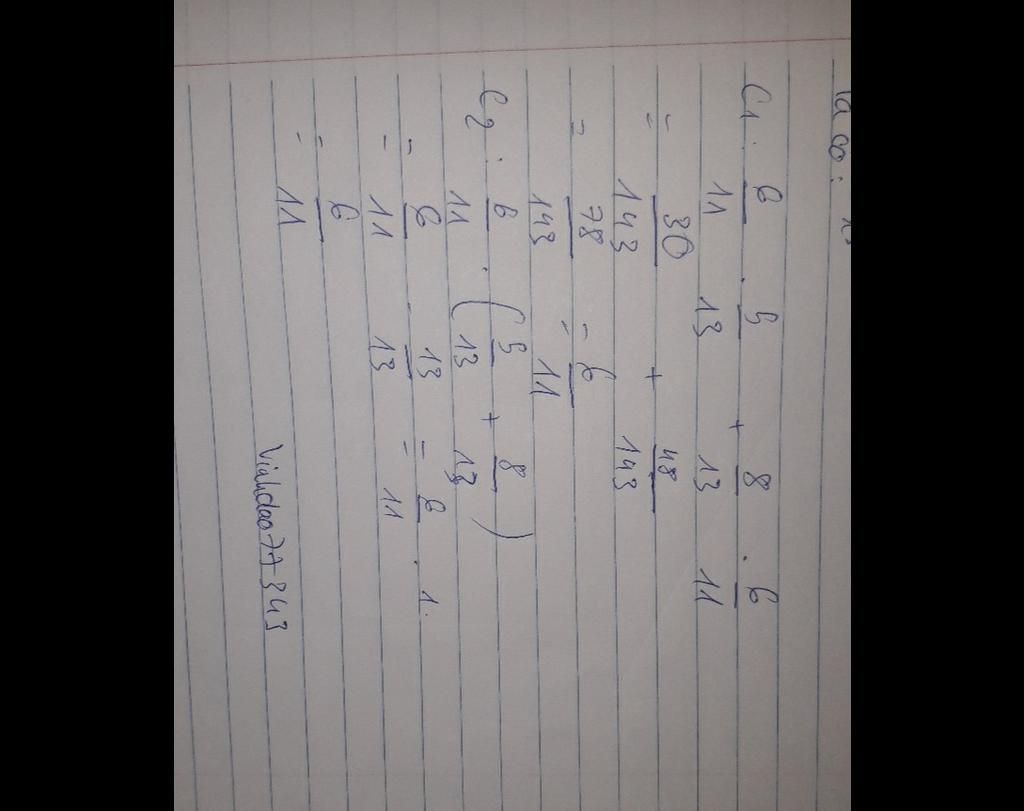 C1 . 6/11 . 5/13 + 8/13 . 6/11
= 30/143 + 48/143
= 78/143 = 6/11
C2 : 6/11 . (5/13 + 8/13)
= 6/11 13/13 = 6/11 . 1.
= 6/11
Vinhdao77-343